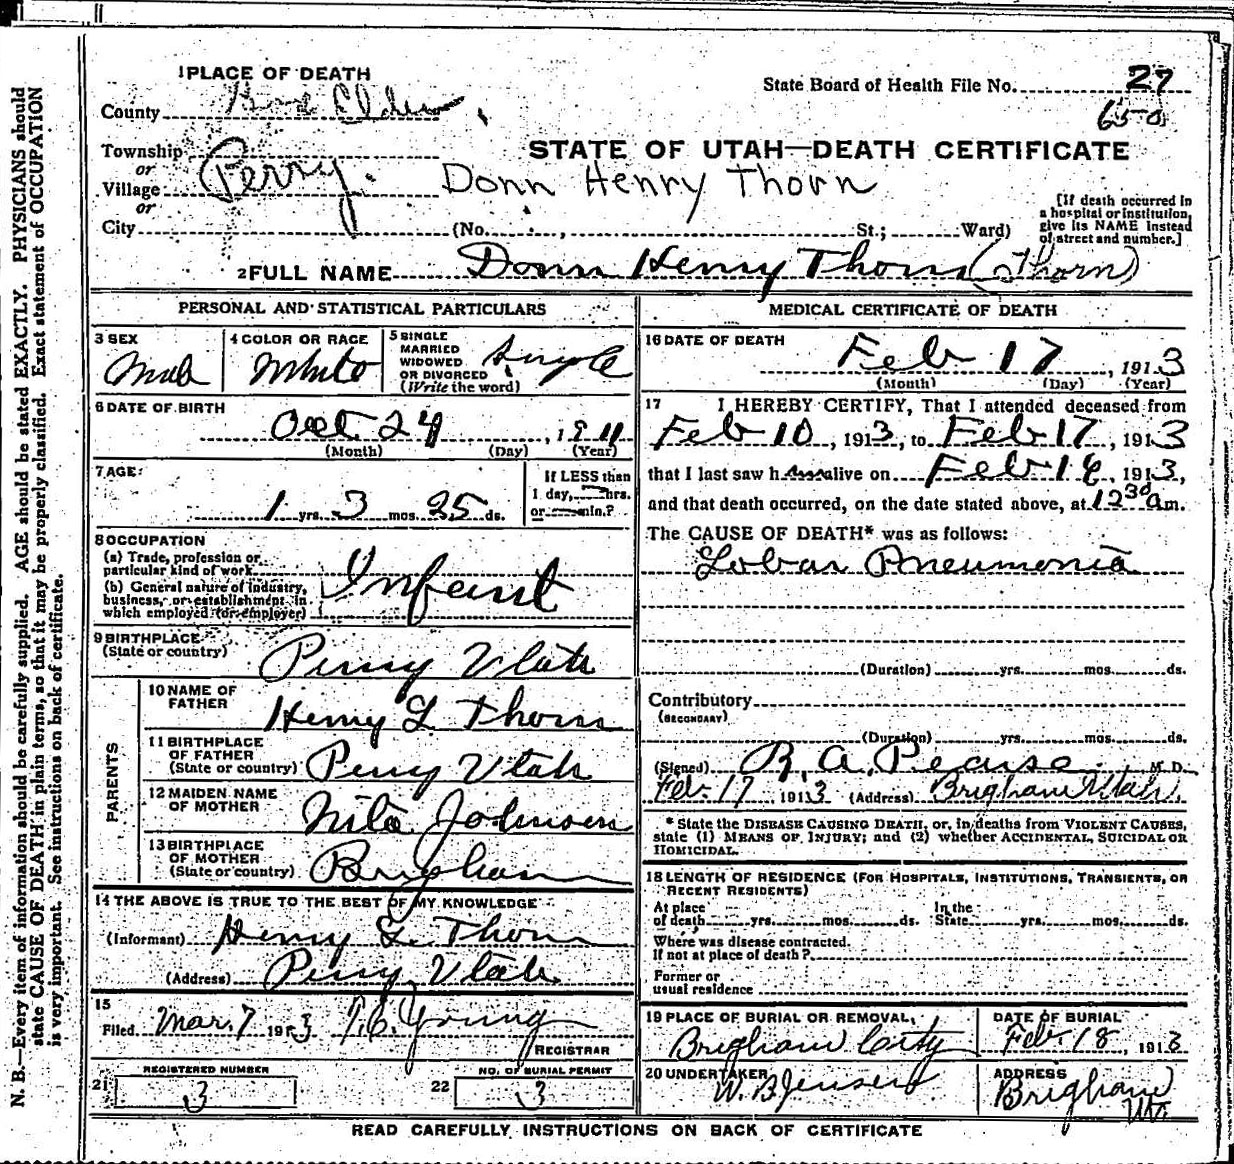 1 PLACE OF DEATH
State Board of Health File No. 27
County Box Elder
650
Township
or
Village Perry.
or
City
STATE OF UTAH—DEATH CERTIFICATE
Donn Henry Thorn
(No. , St.; Ward)
[If death occurred in
a hospital or institution,
give its NAME instead
of street and number.]
2 FULL NAME Donn Henry Thorn (Thorn)
PERSONAL AND STATISTICAL PARTICULARS
3 SEX
Male
4 COLOR OR RACE
White
5 SINGLE
MARRIED
WIDOWED
OR DIVORCED
(Write the word)
Single
6 DATE OF BIRTH
Oct 24, 1911
(Month) (Day) (Year)
7 AGE:
1 yrs. 3 mos. 25 ds.
If LESS than
1 day, hrs.
or min.?
8 OCCUPATION
(a) Trade, profession or
particular kind of work
(b) General nature of industry,
business, or establishment in
which employed (or employer)
Infant
9 BIRTHPLACE
(State or country)
Perry Utah
PARENTS
10 NAME OF
FATHER
Henry L Thorn
11 BIRTHPLACE
OF FATHER
(State or country)
Perry Utah
12 MAIDEN NAME
OF MOTHER
Nita Johnson
13 BIRTHPLACE
OF MOTHER
(State or country)
Brigham
14 THE ABOVE IS TRUE TO THE BEST OF MY KNOWLEDGE
(Informant) Henry L. Thorn
(Address) Perry Utah
15
Filed Mar. 7 1913 Young
REGISTRAR
21 REGISTERED NUMBER
3
22 NO. OF BURIAL PERMIT
3
MEDICAL CERTIFICATE OF DEATH
16 DATE OF DEATH
Feb 17, 1913
(Month) (Day) (Year)
17 I HEREBY CERTIFY, That I attended deceased from
Feb 10, 1913, to Feb 17, 1913
that I last saw him alive on Feb 16, 1913,
and that death occurred, on the date stated above, at 12 30 a m.
The CAUSE OF DEATH* was as follows:
Lobar Pneumonia
(Duration) yrs. mos. ds.
Contributory
(SECONDARY)
(Duration) yrs. mos. ds.
(Signed) R. A. Pearse. M. D.
Feb. 17, 1913 (Address) Brigham Utah.
* State the DISEASE CAUSING DEATH, or, in deaths from VIOLENT CAUSES,
state (1) MEANS OF INJURY; and (2) whether ACCIDENTAL, SUICIDAL OR
HOMICIDAL.
18 LENGTH OF RESIDENCE (FOR HOSPITALS, INSTITUTIONS, TRANSIENTS, OR
RECENT RESIDENTS)
At place
of death yrs. mos. ds.
In the
State yrs. mos. ds.
Where was disease contracted.
If not at place of death?
Former or
usual residence
19 PLACE OF BURIAL OR REMOVAL,
Brigham City
DATE OF BURIAL
Feb. 18, 1913
20 UNDERTAKER
W. B. Jensen
ADDRESS
Brigham
Ut.
READ CAREFULLY INSTRUCTIONS ON BACK OF CERTIFICATE
N. B.—Every item of information should be carefully supplied. AGE should be stated EXACTLY. PHYSICIANS should
state CAUSE OF DEATH in plain terms, so that it may be properly classified. Exact statement of OCCUPATION
is very important. See instructions on back of certificate.